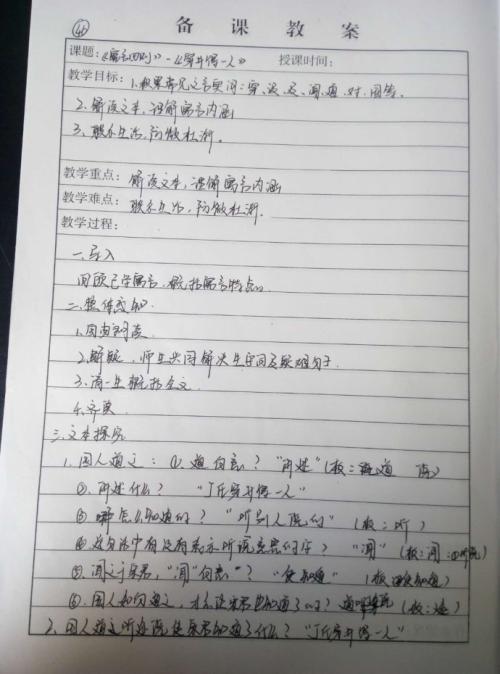 46
备课教案
课题:《寓言四则》-《穿井得一人》 授课时间:
教学目标: 1、积累常见文言实词:穿、汲、及、闻、道、对、国等。
2、解读文本,理解寓言内涵
3、联系生活,防微杜渐。
教学重点: 解读文本,理解寓言内涵
教学难点: 联系生活,防微杜渐.
教学过程:
一.导入
回顾已学寓言,概括寓言特点。
二.整体感知
1.自由朗读
2.解疑,师生共同解决生字词及疑难句子.
3.请一生概括全文
4.齐读
三.文本探究
1.国人道之: ①.道何意? "讲述" (板: 道 说)
②.讲述什么? "丁氏穿井得一人"
③.哪怎么知道的? "听别人说的" (板:听)
④.这句话中有没有表示听说意思的字? "闻" (板:闻:听说)
⑤.闻之于宋君,"闻"何意? "使知道" (板: 使知道)
⑥.国人如何道之,才会让宋君也知道了的? (板:途)
2.国人道之所述说使宋君知道了什么? "丁氏穿井得一人"